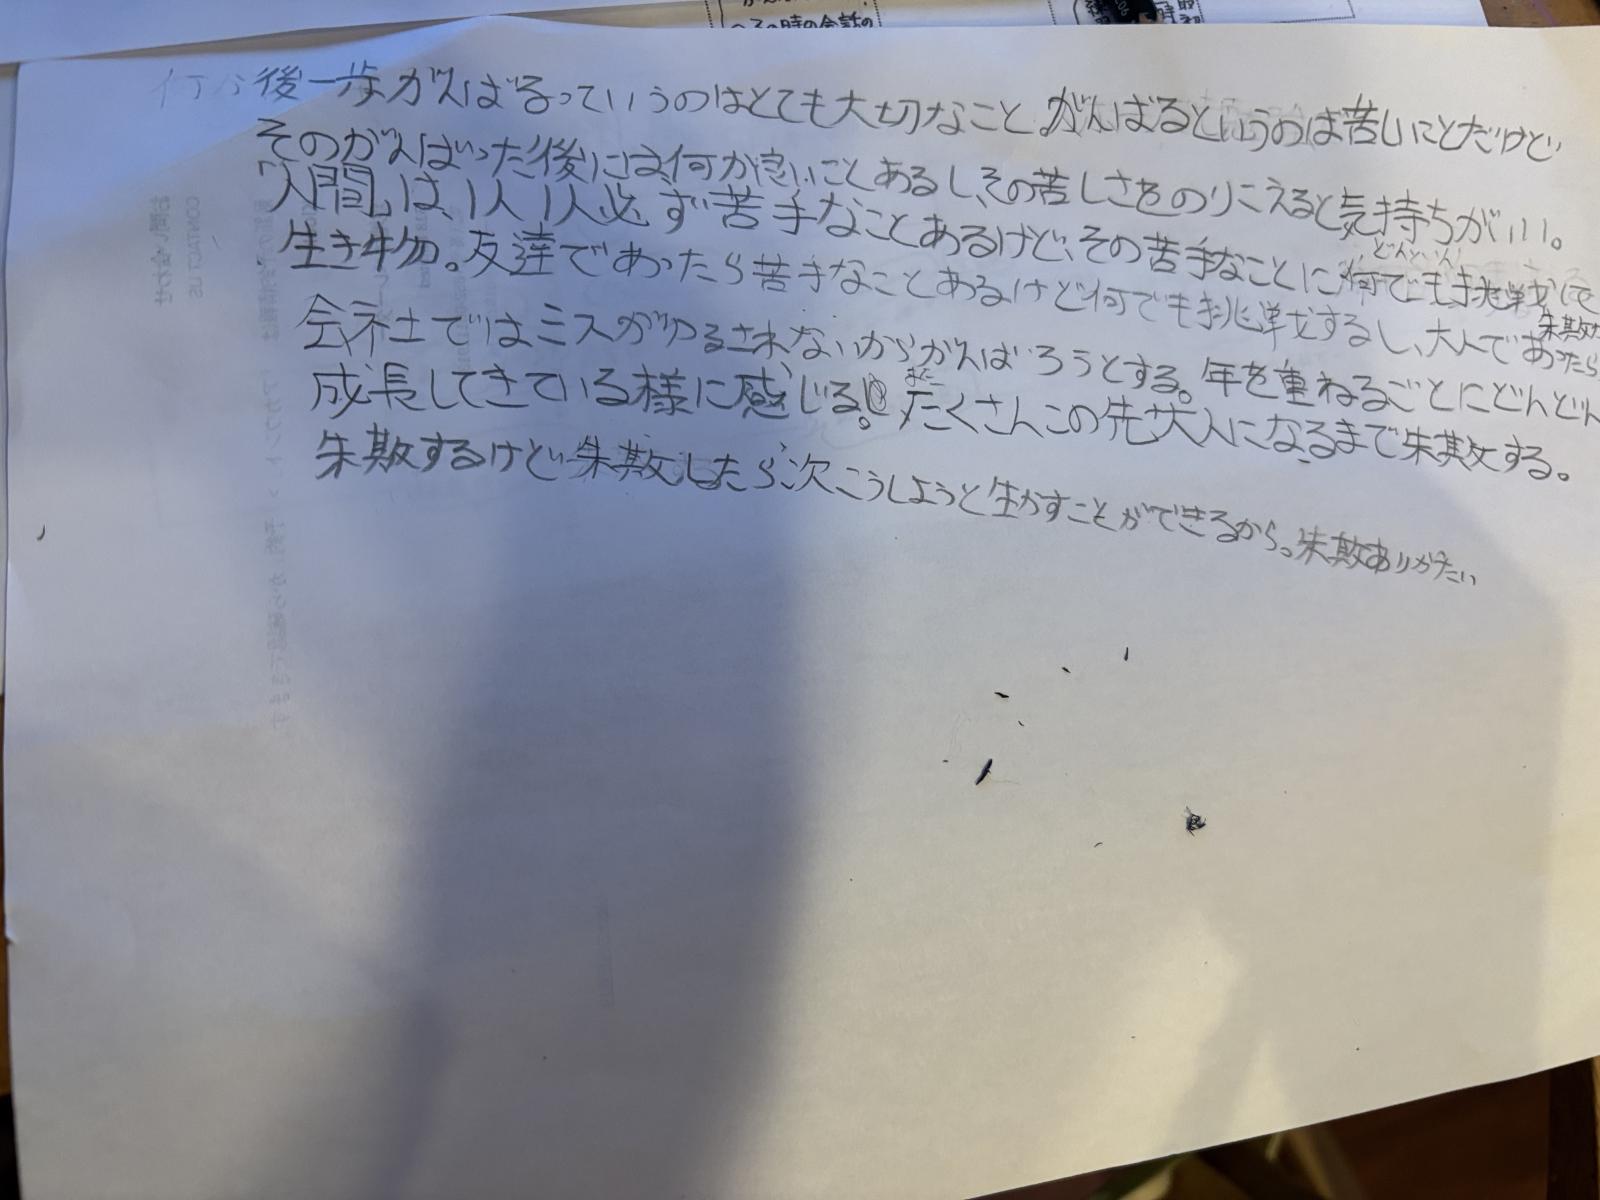 の時の会話の
後一歩がんばるっていうのはとても大切なこと。がんばるというのは苦しいことだけど
そのがんばった後には何か良いことあるし、その苦しさをのりこえると気持ちがいい。
「人間」は、1人1人必ず苦手なことあるけど、その苦手なことに何でも挑戦して
どんどん
生き物。友達であったら苦手なことあるけど何でも挑戦するし、大人であったら
会社ではミスがゆるされないからがんばろうとする。年を重ねるごとにどんどん
成長してきている様に感じる。たくさんこの先大人になるまで失敗する。
失敗するけど失敗したら次こうしようと生かすことができるから。失敗ありがたい
CONTACT US